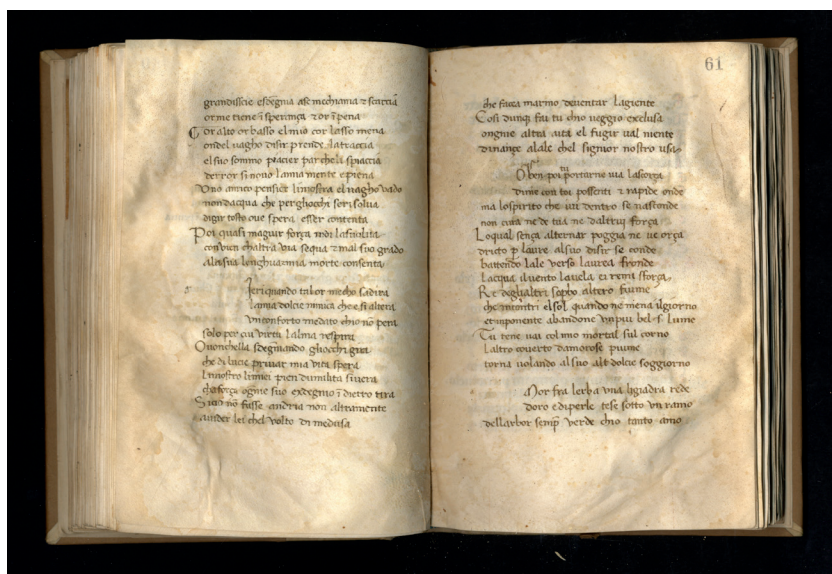 grandisscie esdegnia ase mechiama ⁊ scaccia
or me tiene ĩ sperança ⁊ or ĩ pena
Or alto or basso el mio cor lasso mena
ondel vagho disir prende latraccia
el suo sommo piacier par che li spiaccia
derror si novo lamia mente e piena
Uno amico pensier limostra el vagho vado
non dacqua che pergliocchi si risolva
da gir tosto ove spera esser contenta
Poi quasi maguir força indi lasvolta
convien chaltra via segua ⁊ mal suo grado
ala sua lungha emia morte consenta
Jeri quando talor mecho sadira
lamia dolcie nimica che e si altera
Un conforto medato chio nõ pera
solo per cui virtu lalma respira
Ovonchella sdegniando gliocchi gira
che di lucie privar mia vita spera
limostro limiei pien dumilita si vera
cha força ognie suo exdegnio ĩ dietro tira
Se cio nõ fusse andria non altramente
aveder lei chel volto di medusa
61
che facea marmo deventar lagiente
Cosi dunq̃ fai tu chio veggio exclusa
ongnie altra aita el fugir val niente
dinançe alale chel signior nostro usa
O ben poi tu portartene via lascorça
Di me con toi possenti ⁊ rapide onde
ma lo spirito che vui dentro se nasconde
non cura ne de tua ne daltrui força
Loqual sença alternar poggia ne ve orça
dricto p laure al suo disir se conde
battendo lale verso laurea fronde
lacqua il vento lavela ei remi sforça
Re deglialtri sopbo altero fiume
che incontri el sol quando ne mena ilgiorno
et imponente abandone un piu bel s lume
Tu tene vai col mio mortal sul corno
laltro coverto damorose piume
torna volando al suo alt dolcie soggiorno
Mor fra lerba una ligiadra rede
doro e di perle tese sotto un ramo
dellarbor semp̃ verde chio tanto amo